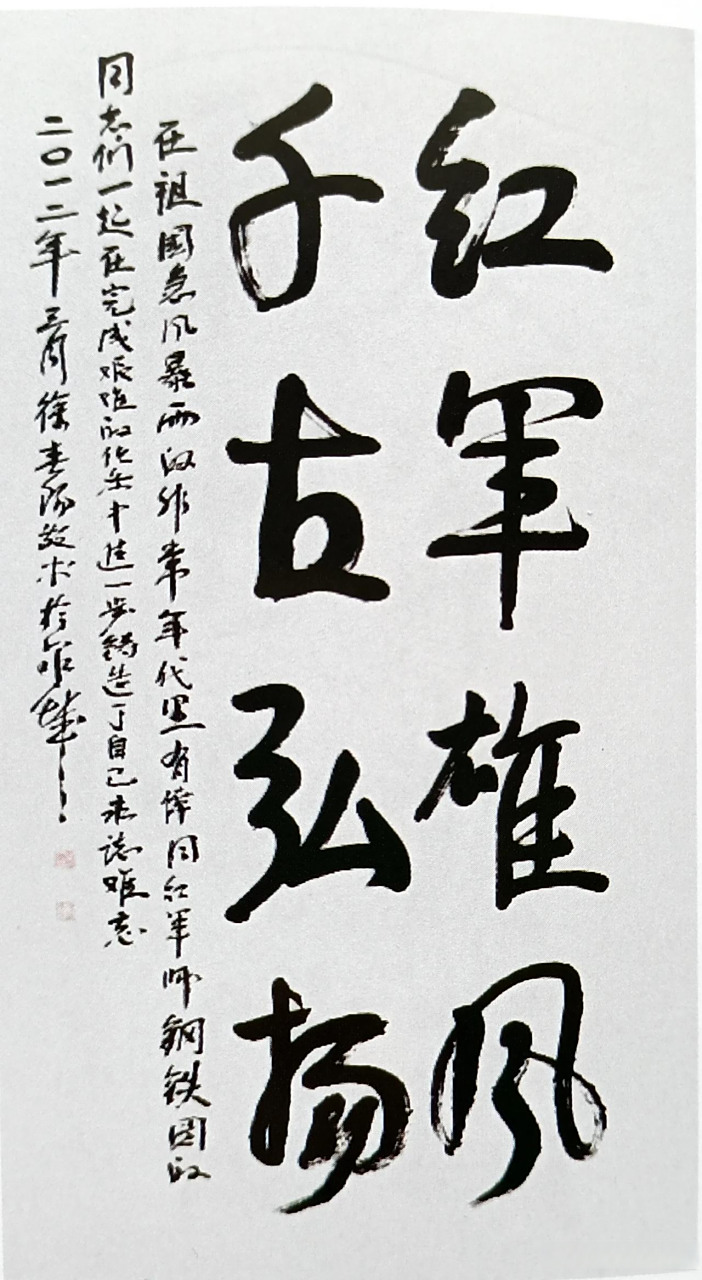 红军雄风
千古弘扬
在祖国急风暴雨的非常年代里有幸同红军师钢铁团的
同志们一起在完成艰难的任务中进一步锻造了自己来誌难忘
二〇一二年三月徐春阳敬书於